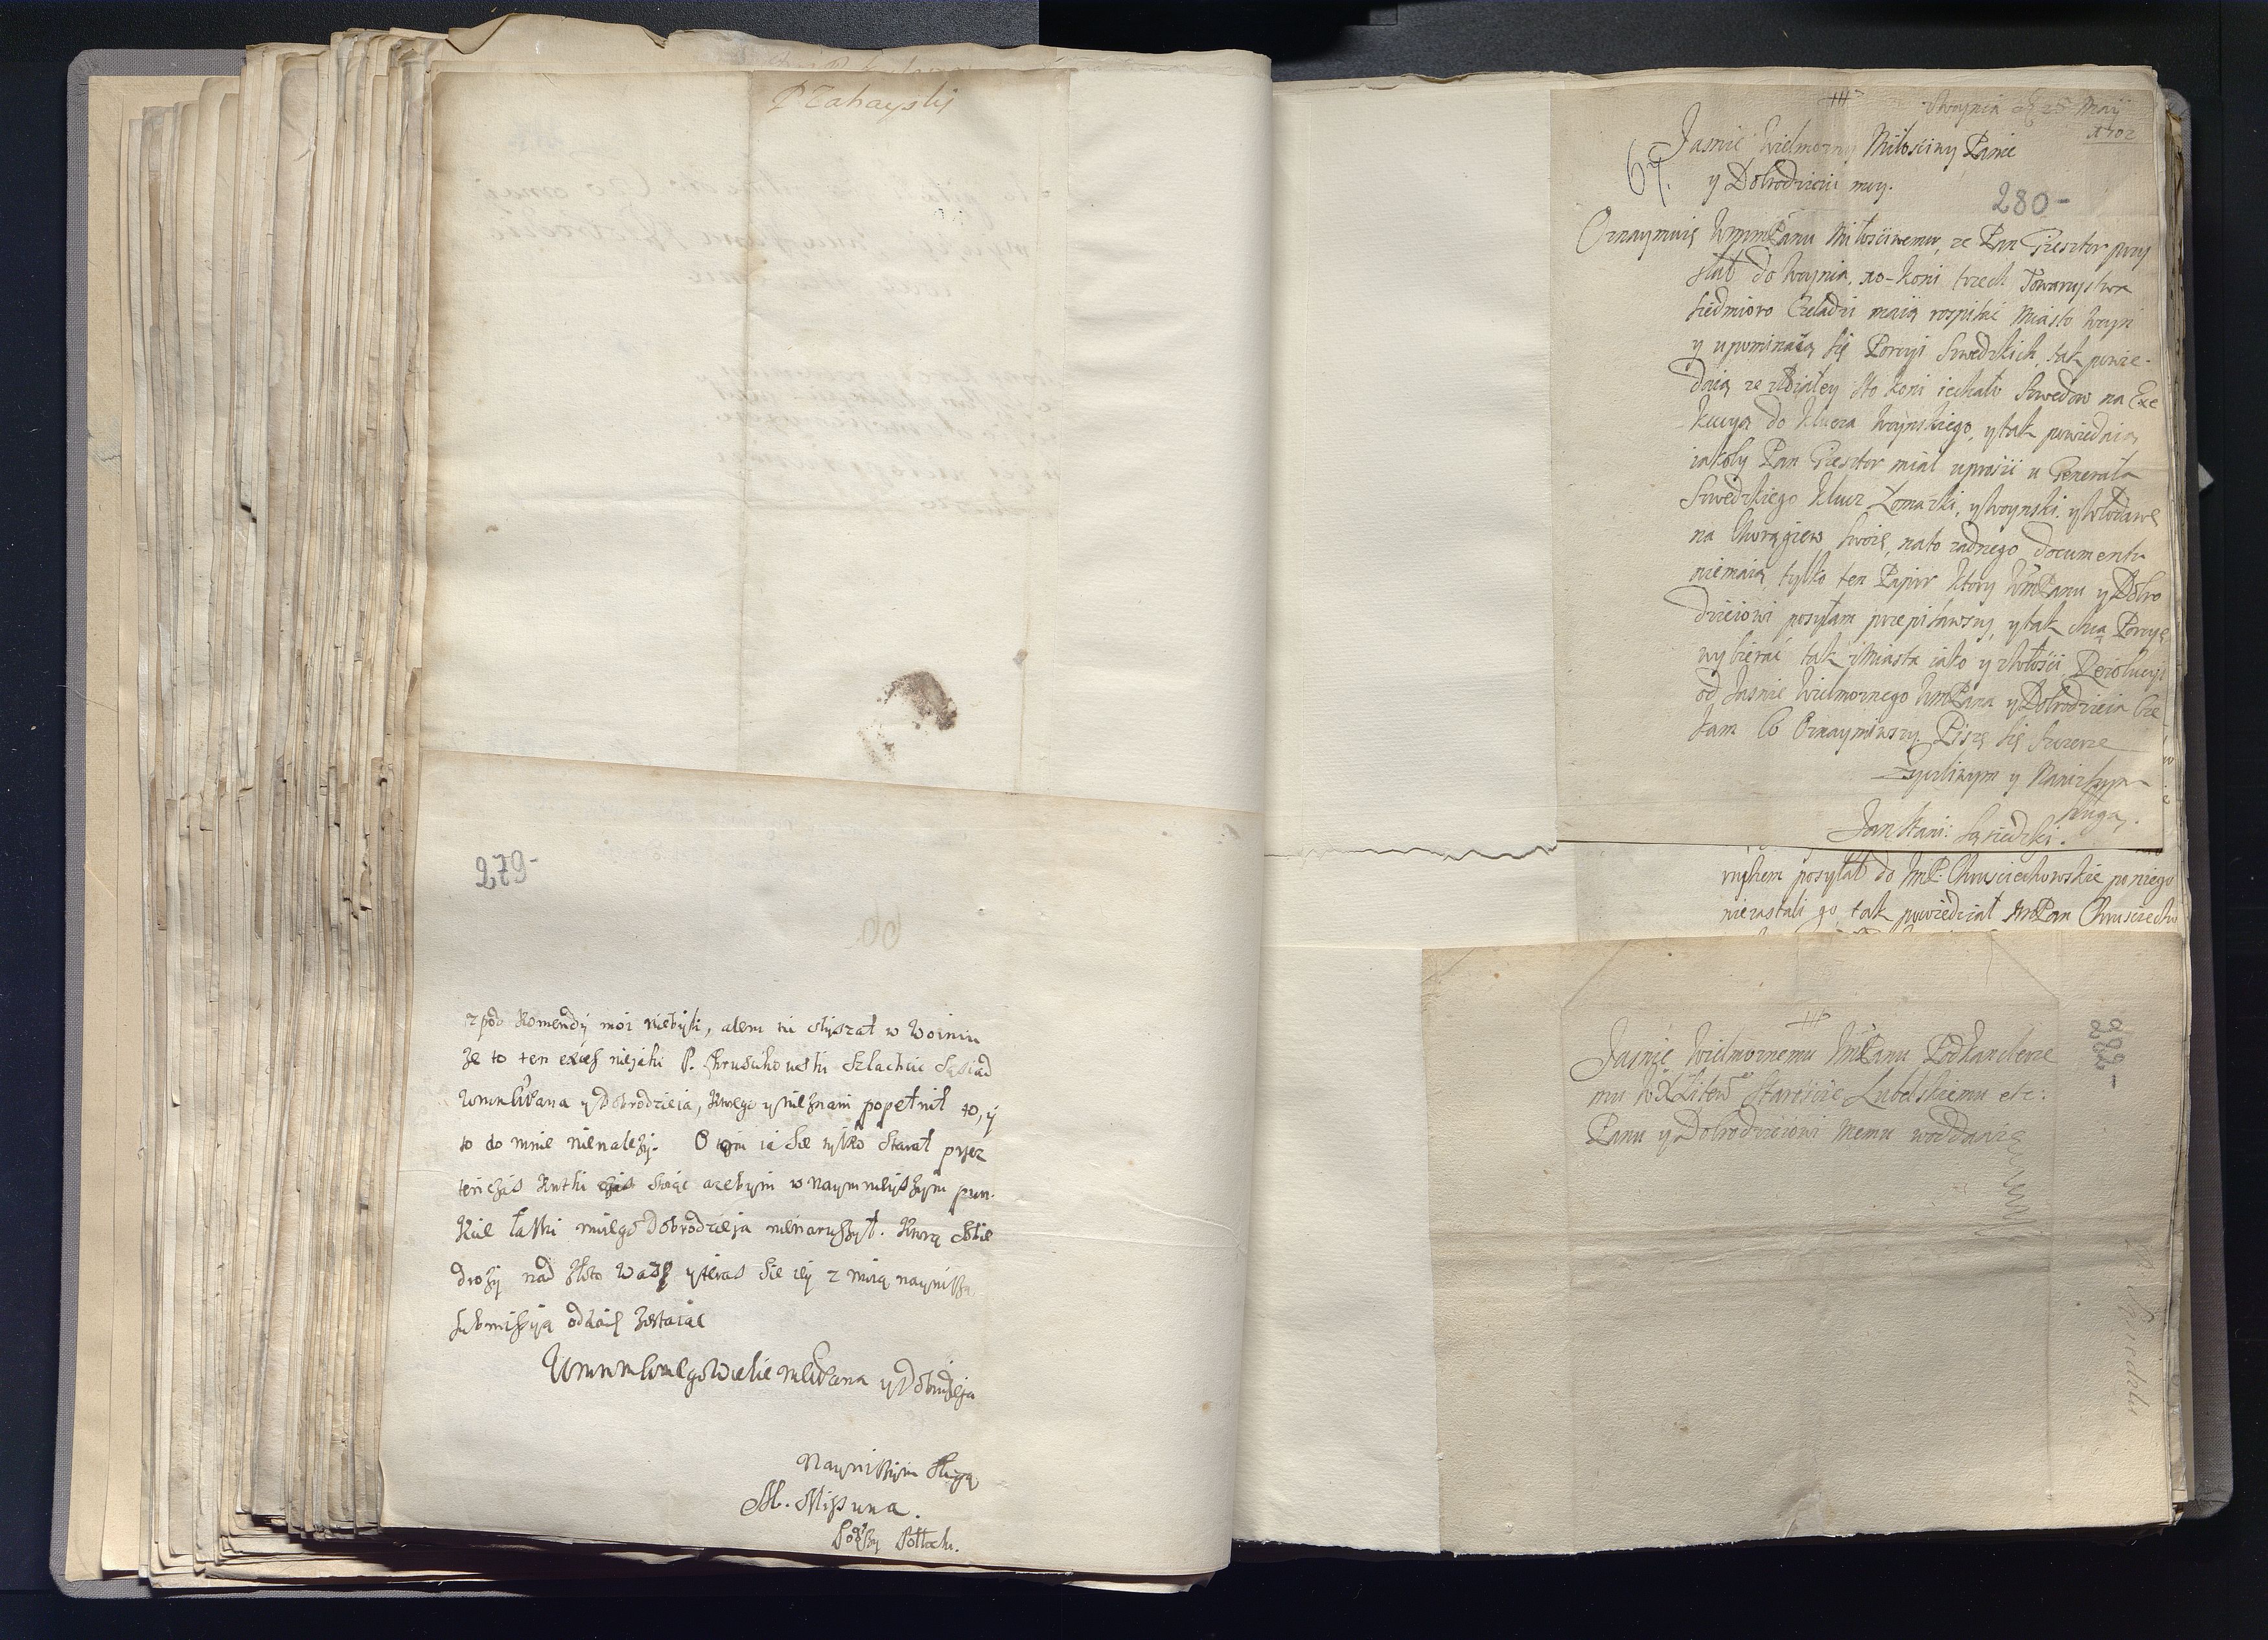 P Zahayski
279-
z pod Komendÿ moi niebÿli, alem tu słyszał w Woiniu
że to ten exces niejaki P. Chruscikowski Szlachcic Sąsiad
y Dobrodzieia, ktorego y nieznam popełnił to, ÿ
to do mnie nienależÿ. O tÿm ia sie tylko starał przez
ten czas krotki stoiąc azebÿm w naymnieÿszÿm pun-
kcie łaski mięgo Dobrodzieja nienaruszÿł. Ktorą sobie
drożÿ nad złoto ważę ÿ teras sie ieÿ z moią naynissą
submissÿią oddaię zostaiąc
y Dobrodzieja
Naynissÿm sługą
M. Missuna.
280-
Woynia d 25 Maij
1702
67.
Jasnie Wielmozny Miłosciwy Panie
y Dobrodzieiu moy.
Oznaymuię WmmPanu Miłosciwemu, ze Pan Giesztor przy
słał do Woynia, 10-koni trzech Towarzystwa
siedmioro Czeladzi maią rospisać Miasto Woyń
y upominaią się Porcyi Szwedzkich, tak powie-
daią ze zBiałey sto koni iechało Szwedow na Exe
kucyą do klucza Woynskiego, y tak powiedaią
iakoby Pan Giesztor miał uprosić u Generała
Szwedzkiego klucz Łomazki, y Woynski, y Włodawę
na Chorągiew swoię, nato zadnego documentu
niemaią tylko ten Papir ktory WmPanu y Dobro
dzieiowi posyłam przepisawszy, y tak chcą Porcyę
wybierać tak zMiasta iako y zWłości, Rezolucyi
od Jasnie Wielmoznego WmPana y Dobrodzieia cze
kam Co Oznaymiwszy. Piszę się szczerze
zyczliwym y Nanizszym
sługą.
Jan Stani: Sąsiedzki.
posyłał do ImP: Chrusciechowskie po niego
niezastali go, tak powiedział ImPan Chrusciecho
Jasnię Wielmoznemu ImPanu Podkanclerze
mu WXLitew Staroscie Lubelskiemu etc:
Panu y Dobrodzieiowi Memu woddanie